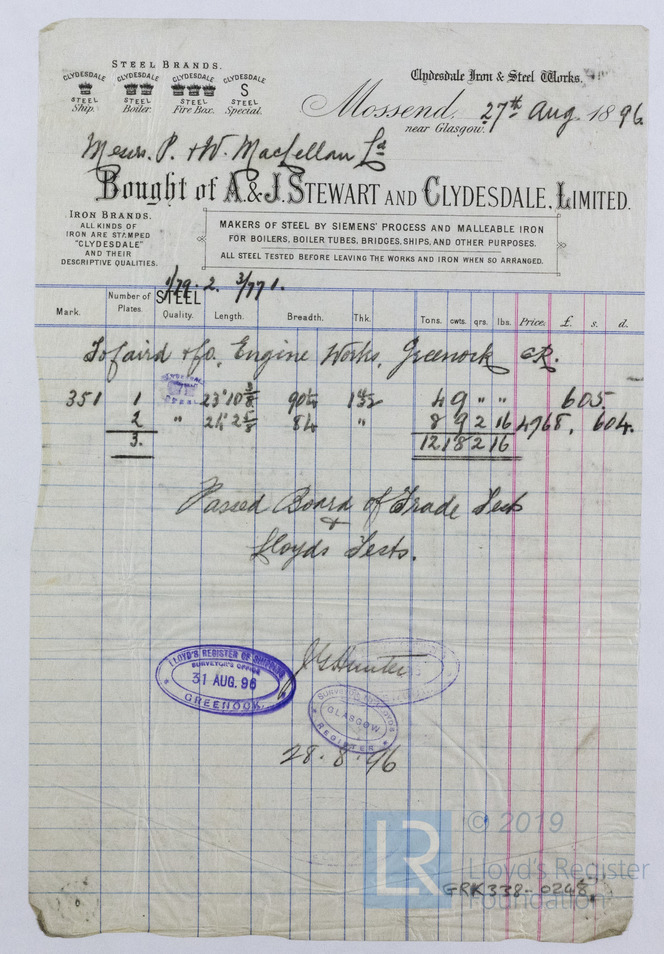 STEEL BRANDS.
CLYDESDALE STEEL Ship.
CLYDESDALE STEEL Boiler.
CLYDESDALE STEEL Fire Box.
CLYDESDALE S STEEL Special.
Clydesdale Iron & Steel Works.
Mossend. 27th Aug. 1896.
near Glasgow.
Messrs. P. & W. MacLellan Ld
Bought of A. & J. STEWART AND CLYDESDALE, LIMITED.
IRON BRANDS.
ALL KINDS OF
IRON ARE STAMPED
"CLYDESDALE"
AND THEIR
DESCRIPTIVE QUALITIES.
MAKERS OF STEEL BY SIEMENS' PROCESS AND MALLEABLE IRON
FOR BOILERS, BOILER TUBES, BRIDGES, SHIPS, AND OTHER PURPOSES.
ALL STEEL TESTED BEFORE LEAVING THE WORKS AND IRON WHEN SO ARRANGED.
1/79. 2. 3/771.
Mark. Number of Plates. STEEL Quality. Length. Breadth. Thk. Tons. cwts. qrs. lbs. Price. £. s. d.
To Laird & Co. Engine Works, Greenock CR.
351 1 23' 10 3/8 90 1/4 1 4/32 4 9 " " 605.
2 " 24' 2 5/8 84 " 8 9 2 16 4768. 604.
3. 12 18 2 16
Passed Board of Trade Tests
&
Lloyds Tests.
LLOYD'S REGISTER OF SHIPPING
SURVEYOR'S OFFICE
31 AUG. 96
GREENOCK
J G Hunter
SURVEYOR TO LLOYD'S
GLASGOW
REGISTER
28. 8. 96
LR
© 2019
Lloyd's Register
Foundation
GRK338-0248